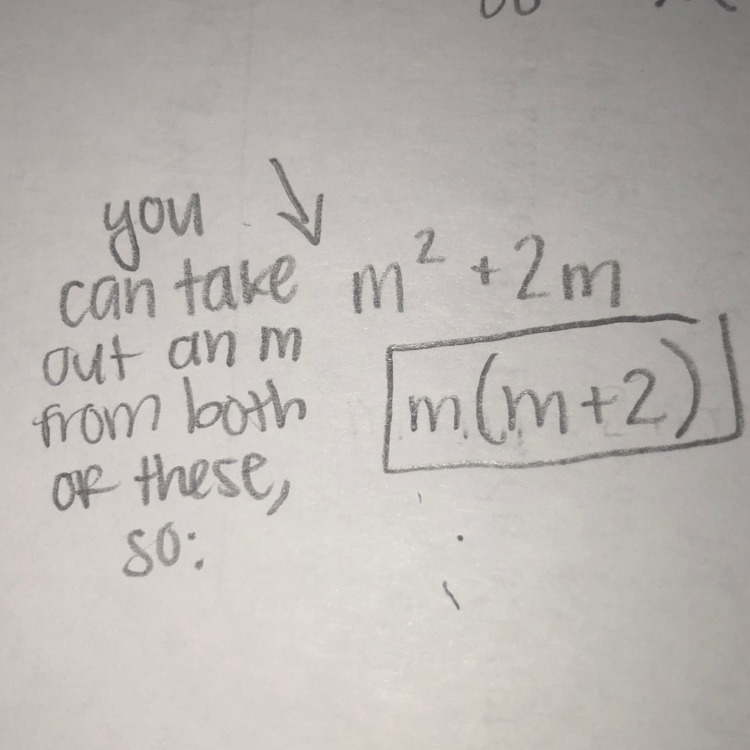 you
can take
out an m
from both
of these,
so:
m² + 2m
m(m+2)